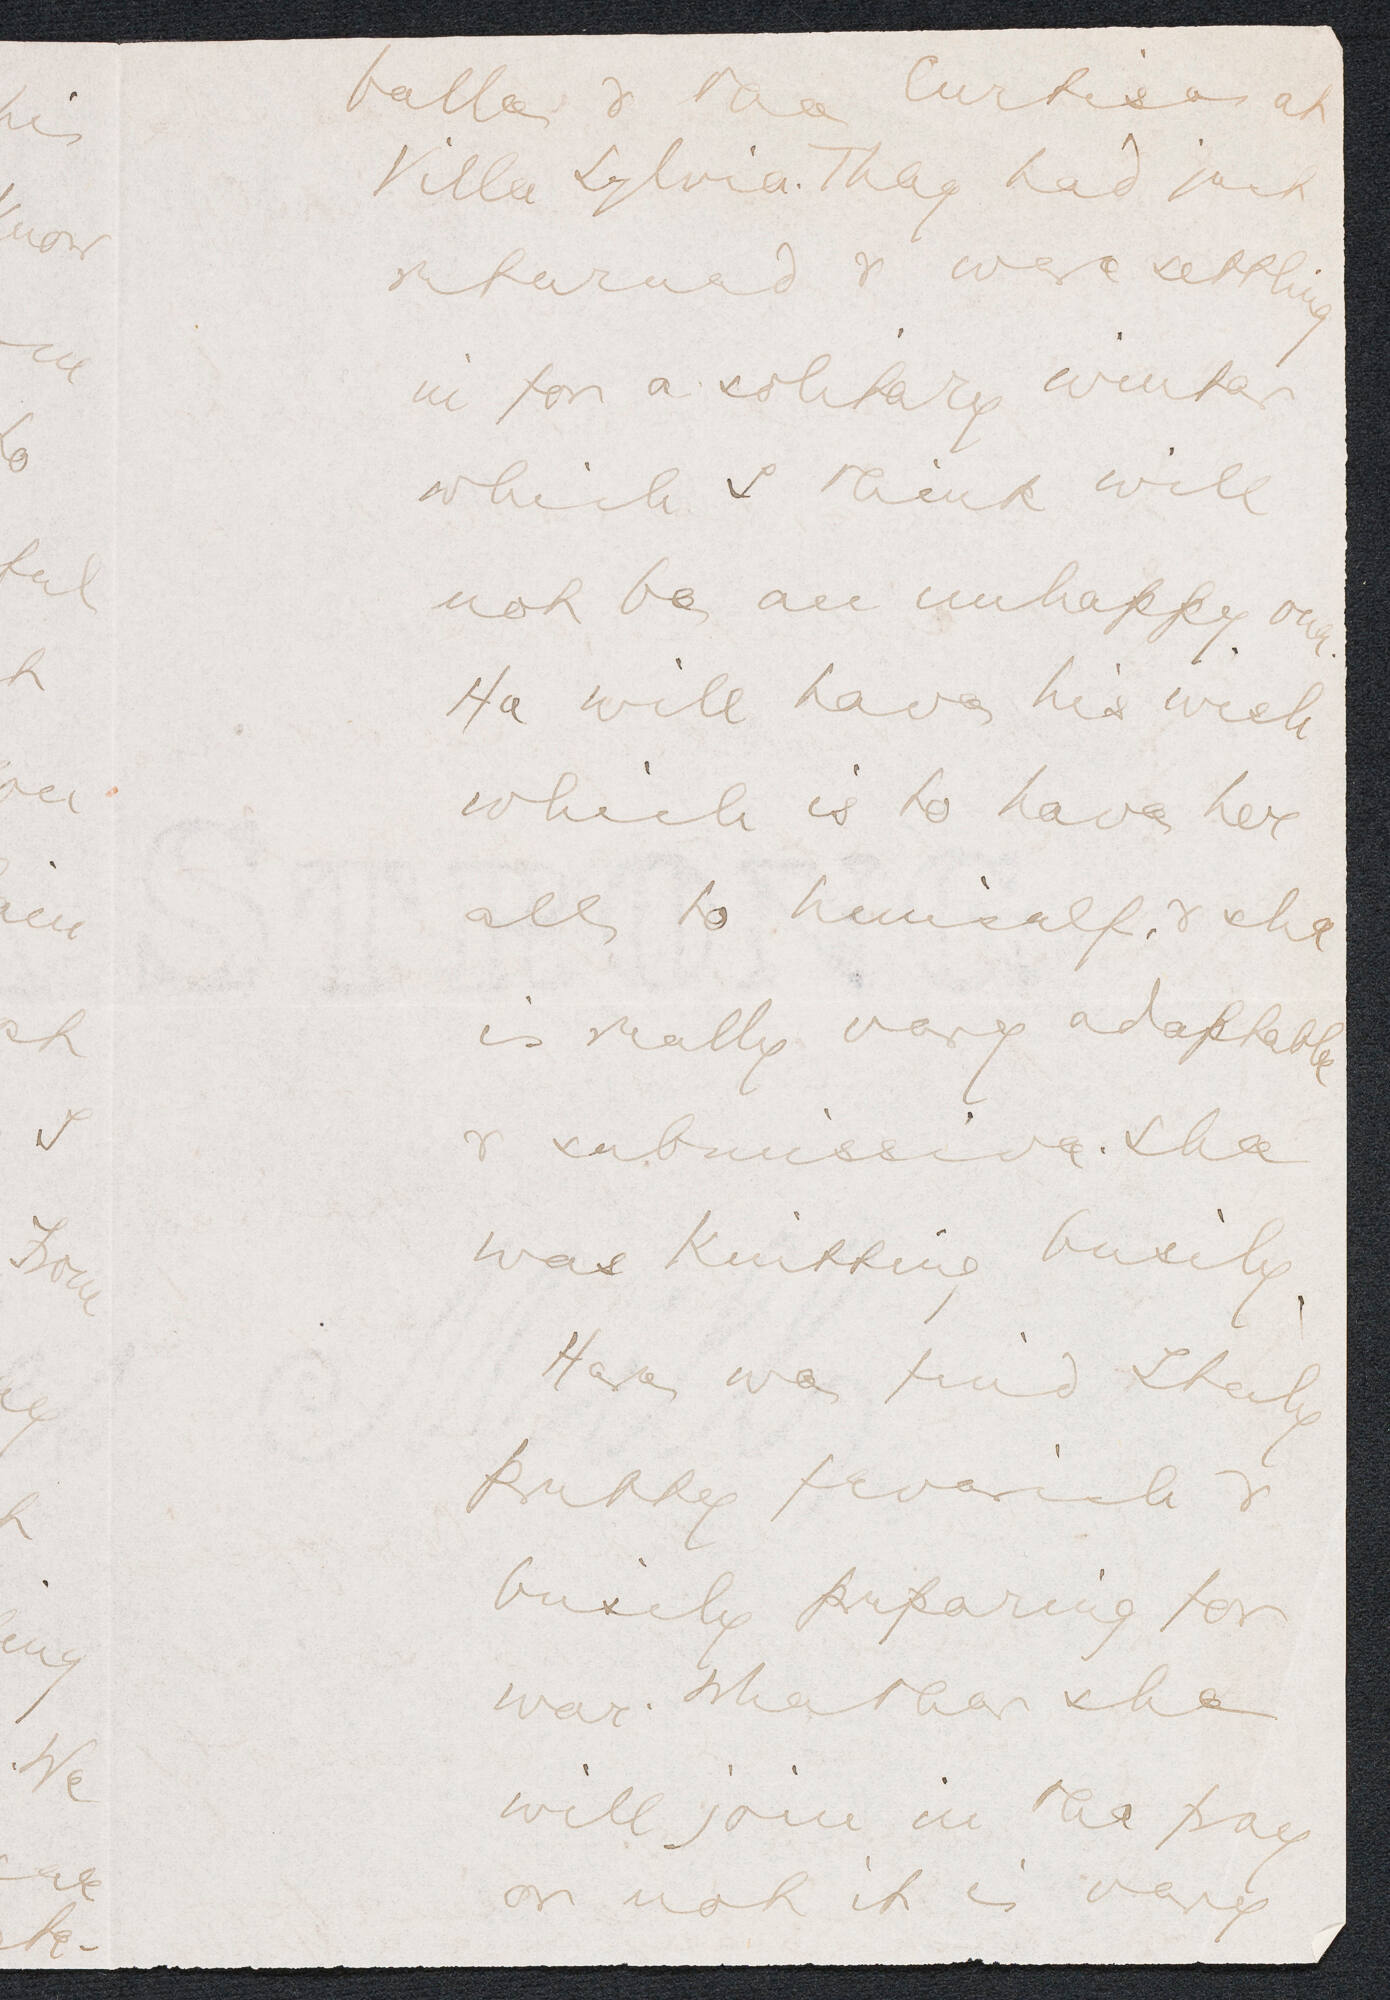 his
know
to
ful
I
From
ing
We
te-
balla & the Curtises at
Villa Sylvia. They had just
returned & were settling
in for a solitary winter
which I think will
not be an unhappy one.
He will have his wish
which is to have her
all to himself, & she
is really very adaptable
& submissive. She
was knitting busily.
Here we find Italy
pretty feverish &
busily preparing for
war. Whether she
will join in the fray
or not it is very